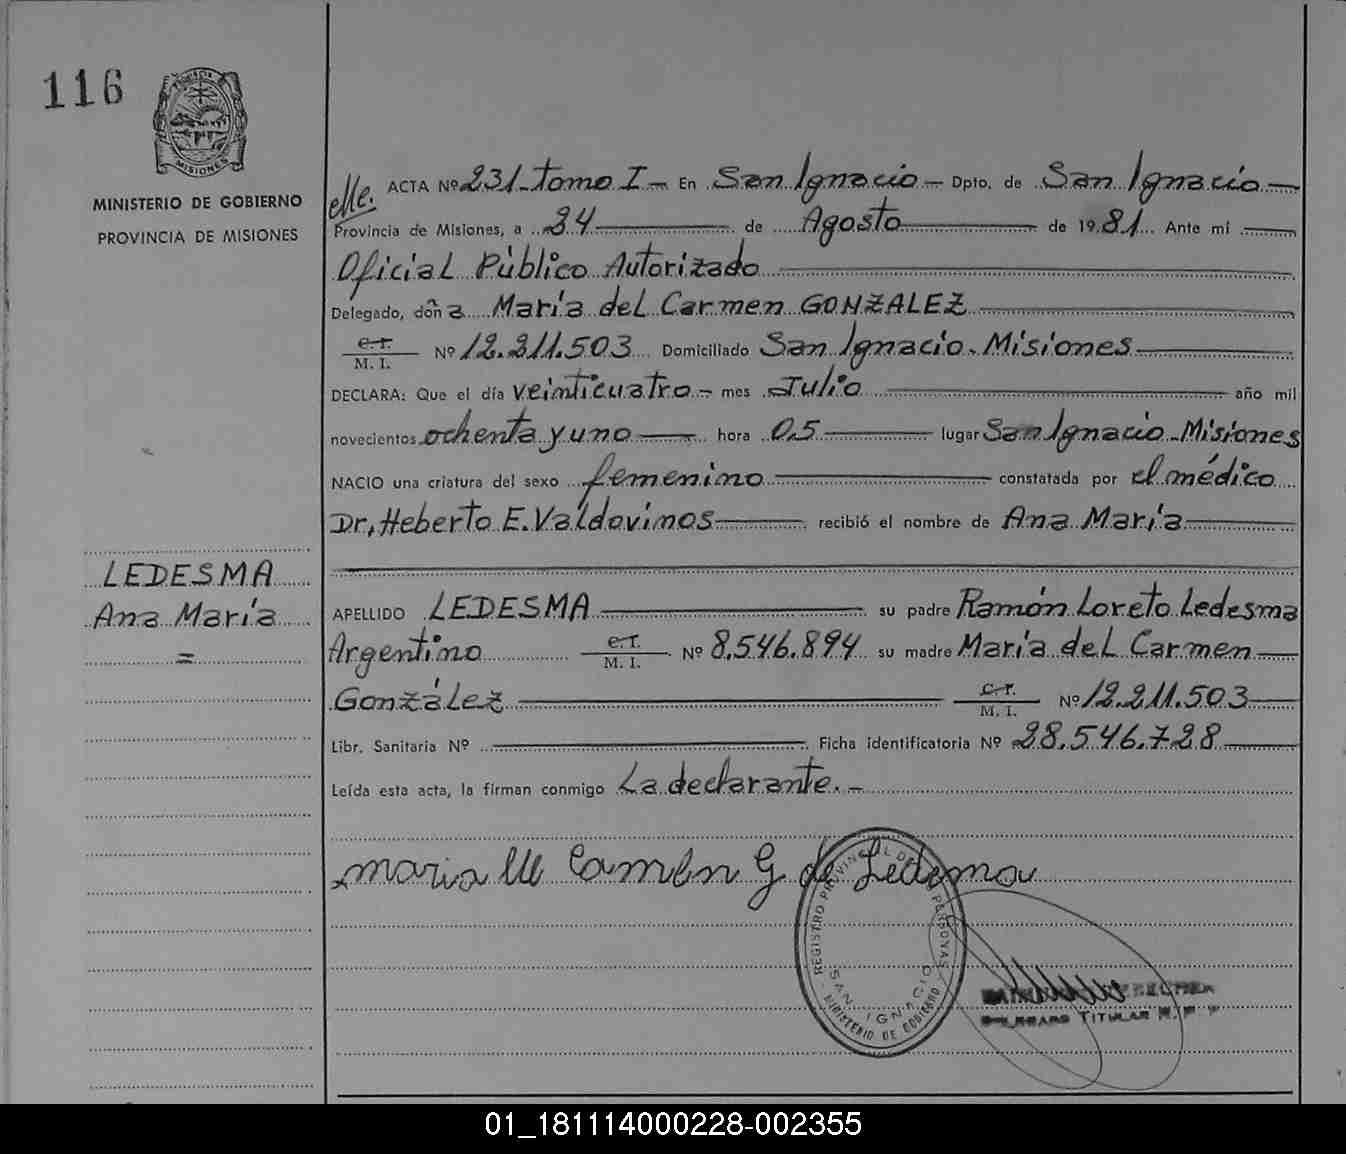 116
MISIONES
MINISTERIO DE GOBIERNO
PROVINCIA DE MISIONES
LEDESMA
Ana María
=
ACTA Nº 231-Tomo I - En San Ignacio - Dpto. de San Ignacio -
Provincia de Misiones, a 24 de Agosto de 1981 Ante mi
Oficial Público Autorizado
Delegado, doña María del Carmen GONZALEZ
C.I. M. I. Nº 12.211.503 Domiciliado San Ignacio - Misiones
DECLARA: Que el día veinticuatro - mes Julio año mil
novecientos ochenta y uno hora 05 lugar San Ignacio - Misiones
NACIO una criatura del sexo femenino constatada por el médico
Dr. Heberto E. Valdovinos recibió el nombre de Ana María
APELLIDO LEDESMA su padre Ramón Loreto Ledesma
Argentino C.I. M. I. Nº 8.546.894 su madre María del Carmen
González C.I. M. I. Nº 12.211.503
Libr. Sanitaria Nº Ficha identificatoria Nº 28.546.728
Leída esta acta, la firman conmigo La declarante. -
maria del Carmen G de Ledesma
REGISTRO PROVINCIAL DE PERSONAS
SAN IGNACIO
MINISTERIO DE GOBIERNO
TITULAR R. P.
01_181114000228-002355